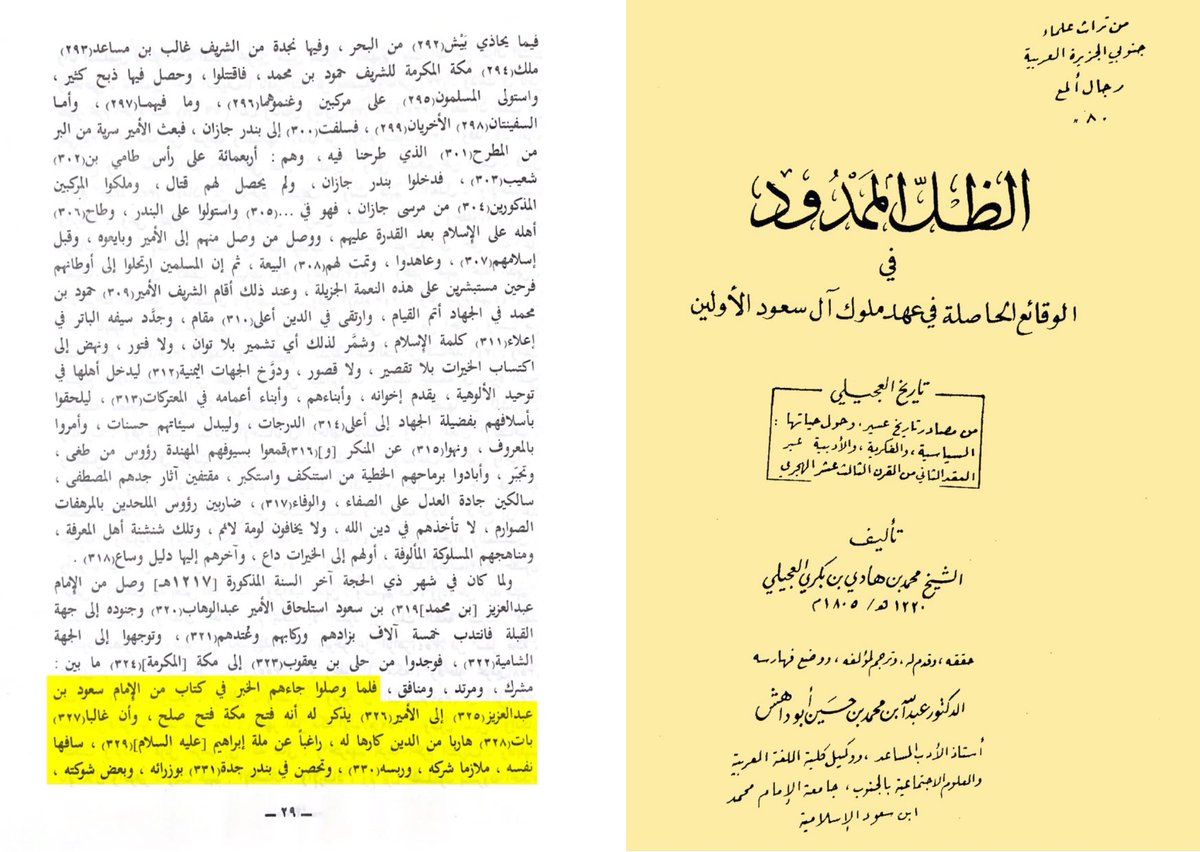 من تراث علماء
جنوبي الجزيرة العربية
رجال ألمع
٨٠
الظلّ الممدود
في
الوقائع الحاصلة في عهد ملوك آل سعود الأولين
تاريخ العجيلي
من مصادر تاريخ عسير، وحول حياتها :
السياسية، والفكرية، والأدبية عبر
العقد الثاني من القرن الثالث عشر الهجري
تأليف
الشيخ محمد بن هادي بن بكري العجيلي
١٢٢٠هـ/ ١٨٠٥م
حققه، وقدم له، وترجم لمؤلفه، ووضع فهارسه
الدكتور عبدالله بن محمد بن حسين أبو داهش
أستاذ الأدب المساعد، ووكيل كلية اللغة العربية
والعلوم الاجتماعية بالجنوب، جامعة الإمام محمد
ابن سعود الإسلامية
فيما يحاذي بَيْش(٢٩٢) من البحر ، وفيها نجدة من الشريف غالب بن مساعد(٢٩٣)
ملك(٢٩٤) مكة المكرمة للشريف حمود بن محمد ، فاقتتلوا ، وحصل فيها ذبح كثير ،
واستولى المسلمون(٢٩٥) على مركبين وغنموهما(٢٩٦) ، وما فيهما(٢٩٧) ، وأما
السفينتان(٢٩٨) الأخريان(٢٩٩) ، فسلفت(٣٠٠) إلى بندر جازان ، فبعث الأمير سرية من البر
من المطرح(٣٠١) الذي طرحنا فيه ، وهم : أربعمائة على رأس طامي بن(٣٠٢)
شعيب(٣٠٣) ، فدخلوا بندر جازان ، ولم يحصل لهم قتال ، وملكوا المركبين
المذكورين(٣٠٤) من مرسى جازان ، فهو في ...(٣٠٥) واستولوا على البندر ، وطاح(٣٠٦)
أهله على الإسلام بعد القدرة عليهم ، ووصل من وصل منهم إلى الأمير وبايعوه ، وقبل
إسلامهم(٣٠٧) ، وعاهدوا ، وتمت لهم(٣٠٨) البيعة ، ثم إن المسلمين ارتحلوا إلى أوطانهم
فرحين مستبشرين على هذه النعمة الجزيلة ، وعند ذلك أقام الشريف الأمير(٣٠٩) حمود بن
محمد في الجهاد أتم القيام ، وارتقى في الدين أعلى(٣١٠) مقام ، وجدَّد سيفه الباتر في
إعلاء(٣١١) كلمة الإسلام ، وشمَّر لذلك أي تشمير بلا توان ، ولا فتور ، ونهض إلى
اكتساب الخيرات بلا تقصير ، ولا قصور ، ودوَّخ الجهات اليمنية(٣١٢) ليدخل أهلها في
توحيد الألوهية ، يقدم إخوانه ، وأبناءهم ، وأبناء أعمامه في المعتركات(٣١٣) ، ليلحقوا
بأسلافهم بفضيلة الجهاد إلى أعلى(٣١٤) الدرجات ، وليبدل سيئاتهم حسنات ، وأمروا
بالمعروف ، ونهوا(٣١٥) عن المنكر [و](٣١٦)قمعوا بسيوفهم المهندة رؤوس من طغى ،
وتجبّر ، وأبادوا برماحهم الخطية من استنكف واستكبر ، مقتفين آثار جدهم المصطفى ،
سالكين جادة العدل على الصفاء ، والوفاء(٣١٧) ، ضاربين رؤوس الملحدين بالمرهفات
الصوارم ، لا تأخذهم في دين الله ، ولا يخافون لومة لائم ، وتلك شنشنة أهل المعرفة ،
ومناهجهم المسلوكة المألوفة ، أولهم إلى الخيرات داع ، وآخرهم إليها دليل وساع(٣١٨) .
ولما كان في شهر ذي الحجة آخر السنة المذكورة [١٢١٧هـ] وصل من الإمام
عبدالعزيز [بن محمد](٣١٩) بن سعود استلحاق الأمير عبدالوهاب(٣٢٠) وجنوده إلى جهة
القبلة فانتدب خمسة آلاف بزادهم وركابهم وعُتدهم(٣٢١) ، وتوجهوا إلى الجهة
الشامية(٣٢٢) ، فوجدوا من حلى بن يعقوب(٣٢٣) إلى مكة [المكرمة](٣٢٤) ما بين :
مشرك ، ومرتد ، ومنافق ، فلما وصلوا جاءهم الخبر في كتاب من الإمام سعود بن
عبدالعزيز(٣٢٥) إلى الأمير(٣٢٦) يذكر له أنه فتح مكة فتح صلح ، وأن غالبا(٣٢٧)
بات(٣٢٨) هاربا من الدين كارها له ، راغباً عن ملة إبراهيم [عليه السلام](٣٢٩) ، سافها
نفسه ، ملازما شركه ، وربسه(٣٣٠) ، وتحصن في بندر جدة(٣٣١) بوزرائه ، وبعض شوكته ،
— ٢٩ —